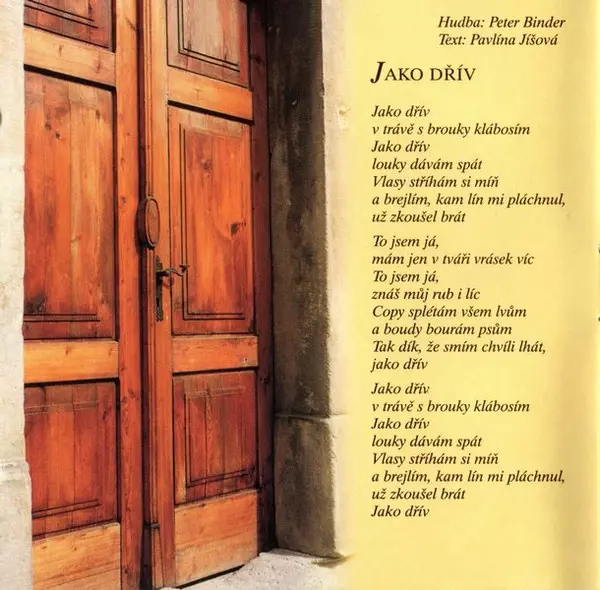 Hudba: Peter Binder
Text: Pavlína Jíšová
JAKO DŘÍV
Jako dřív
v trávě s brouky klábosím
Jako dřív
louky dávám spát
Vlasy stříhám si míň
a brejlím, kam lín mi pláchnul,
už zkoušel brát
To jsem já,
mám jen v tváři vrásek víc
To jsem já,
znáš můj rub i líc
Copy splétám všem lvům
a boudy bourám psům
Tak dík, že smím chvíli lhát,
jako dřív
Jako dřív
v trávě s brouky klábosím
Jako dřív
louky dávám spát
Vlasy stříhám si míň
a brejlím, kam lín mi pláchnul,
už zkoušel brát
Jako dřív